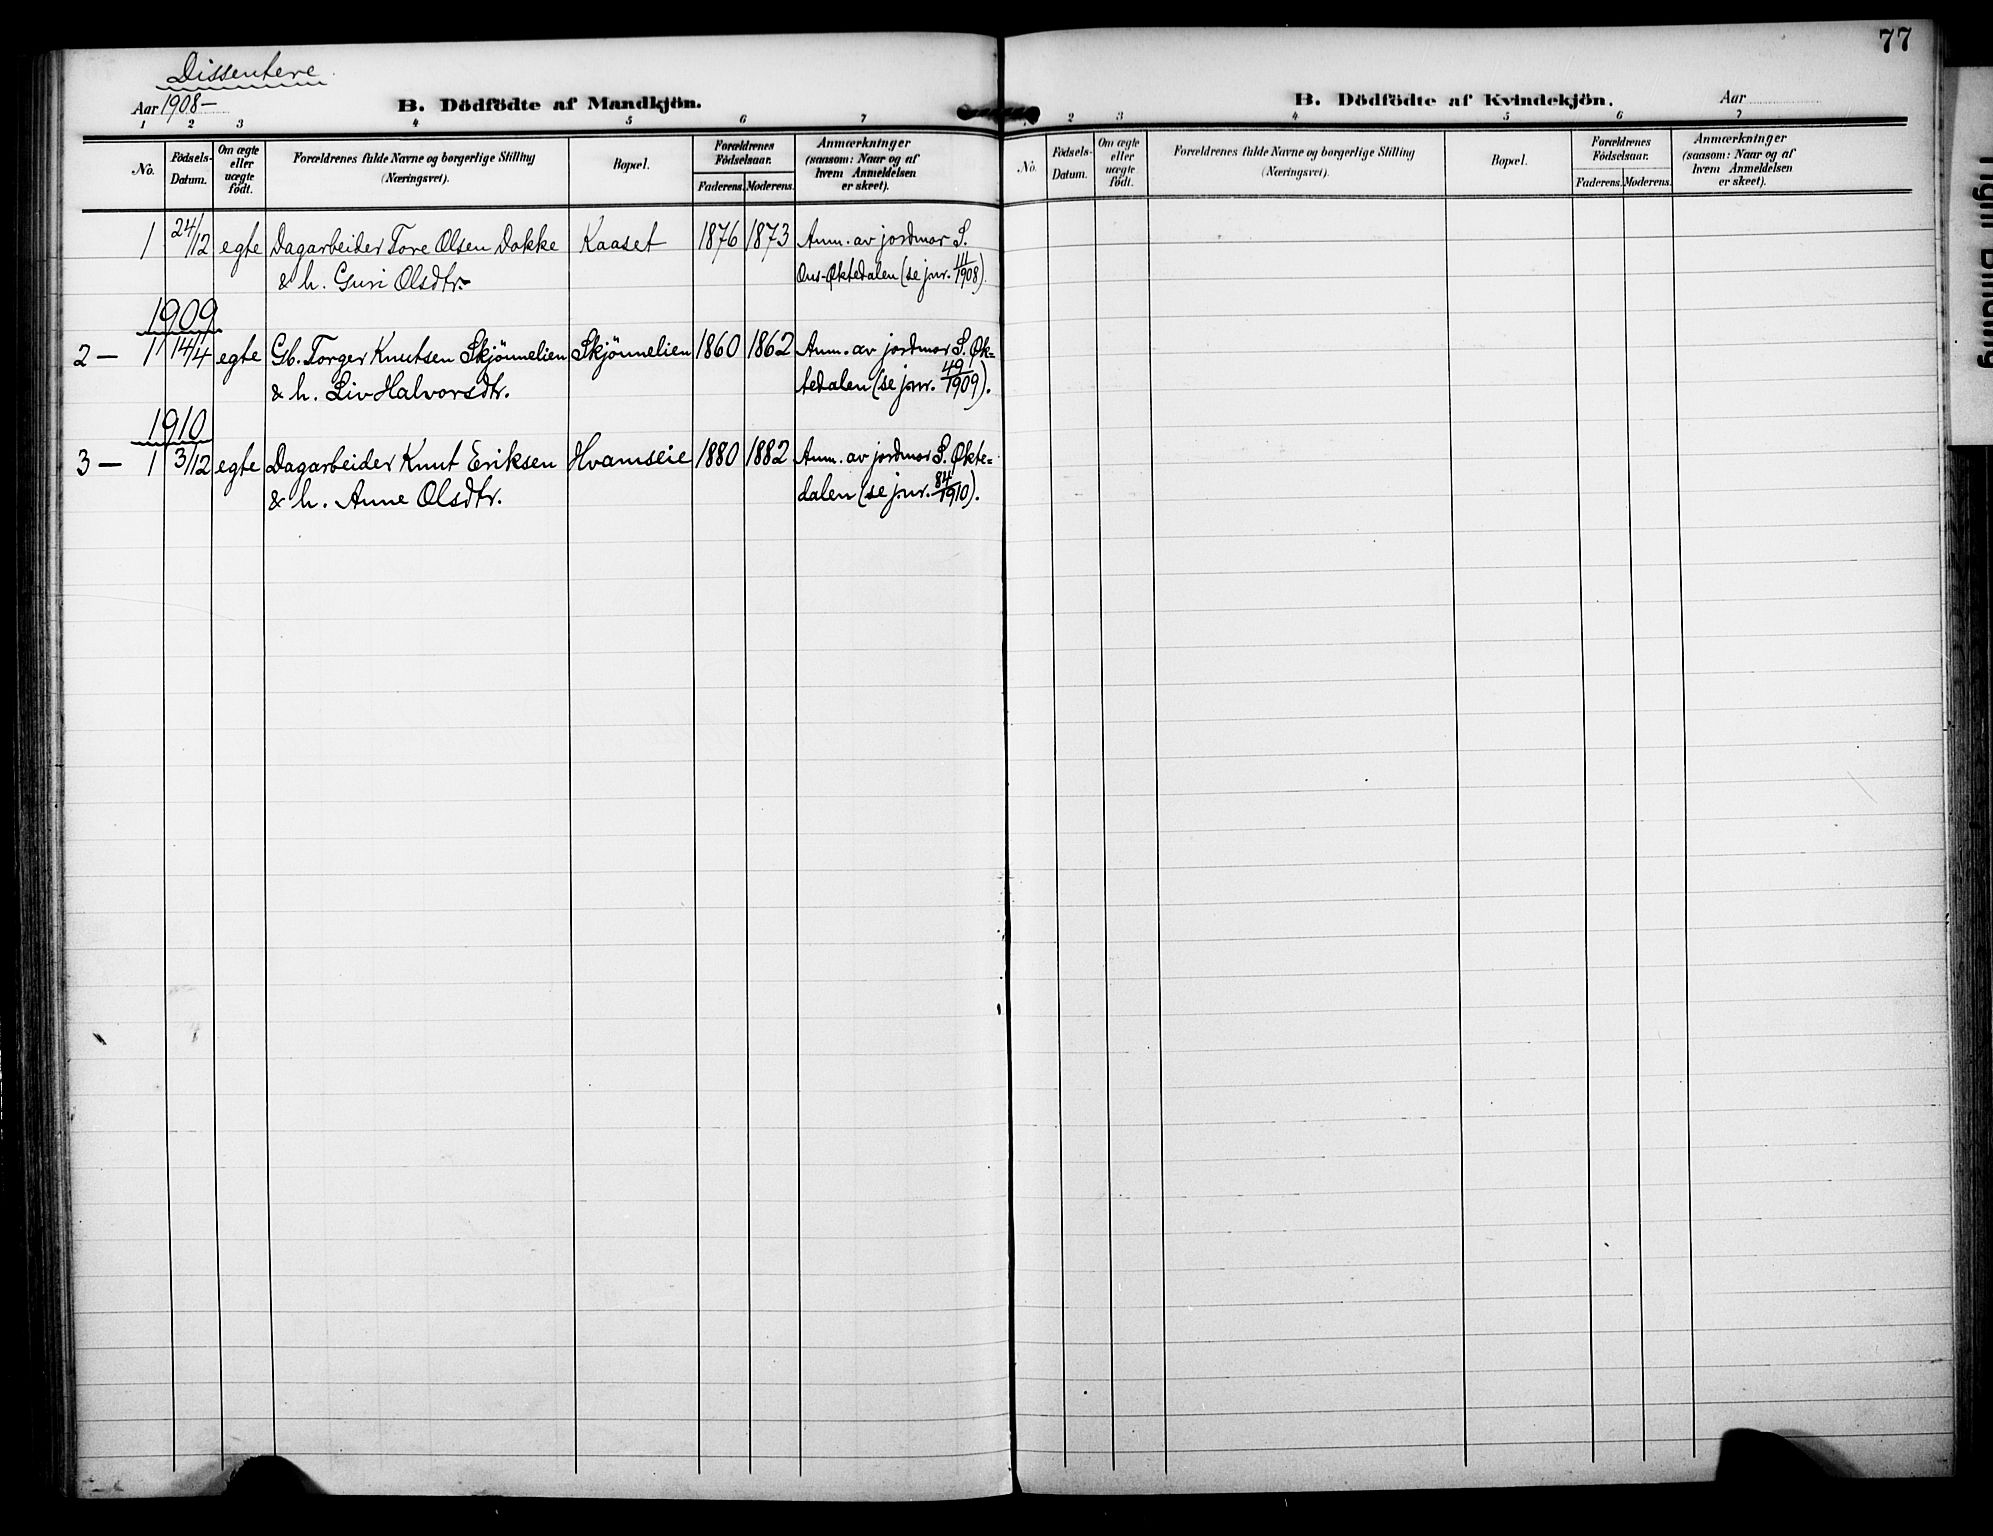 77
Dissentere
Aar 1908-
B. Dödfödte af Mandkjön.
1 2 3 4 5 6 7
No.
Födsels-
Datum.
Om ægte
eller
uægte
födt.
Forældrenes fulde Navne og borgerlige Stilling
(Næringsvei).
Bopæl.
Forældrenes
Födselsaar.
Faderens. Moderens.
Anmærkninger
(saasom: Naar og af
hvem Anmeldelsen
er skeet).
1 24/12 egte Dagarbeider Tore Olsen Dokke Kaaset 1876 1873 Anm. av jordmor S.
& h. Guri Olsdtr. Ous-Øktedalen (se jnr. 111/1908).
1909
2 — 1 14/4 egte Gb. Torger Knutsen Skjönnelien Skjönnelien 1860 1862 Anm. av jordmor S. Øk-
& h. Liv Halvorsdtr. tedalen (se jnr. 49/1909).
1910
3 — 1 3/12 egte Dagarbeider Knut Eriksen Hvamseie 1880 1882 Anm. av jordmor S. Økte-
& h. Anne Olsdtr. dalen (se jnr. 84/1910).
B. Dödfödte af Kvindekjön.
Aar
1 2 3 4 5 6 7
No.
Födsels-
Datum.
Om ægte
eller
uægte
födt.
Forældrenes fulde Navne og borgerlige Stilling
(Næringsvei).
Bopæl.
Forældrenes
Födselsaar.
Faderens. Moderens.
Anmærkninger
(saasom: Naar og af
hvem Anmeldelsen
er skeet).
Binding